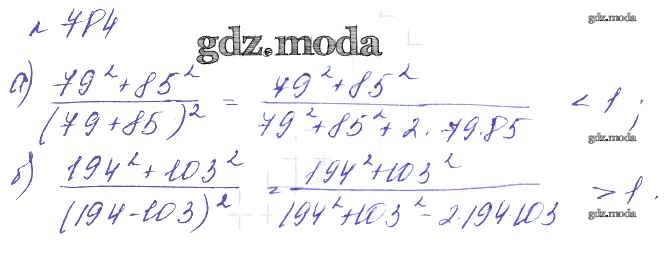 № 784
gdz.moda
gdz.moda
а) (79² + 85²) / (79 + 85)² = (79² + 85²) / (79² + 85² + 2 · 79 · 85) < 1;
gdz.moda
б) (194² + 103²) / (194 - 103)² = (194² + 103²) / (194² + 103² - 2 · 194 103) > 1.
gdz.moda